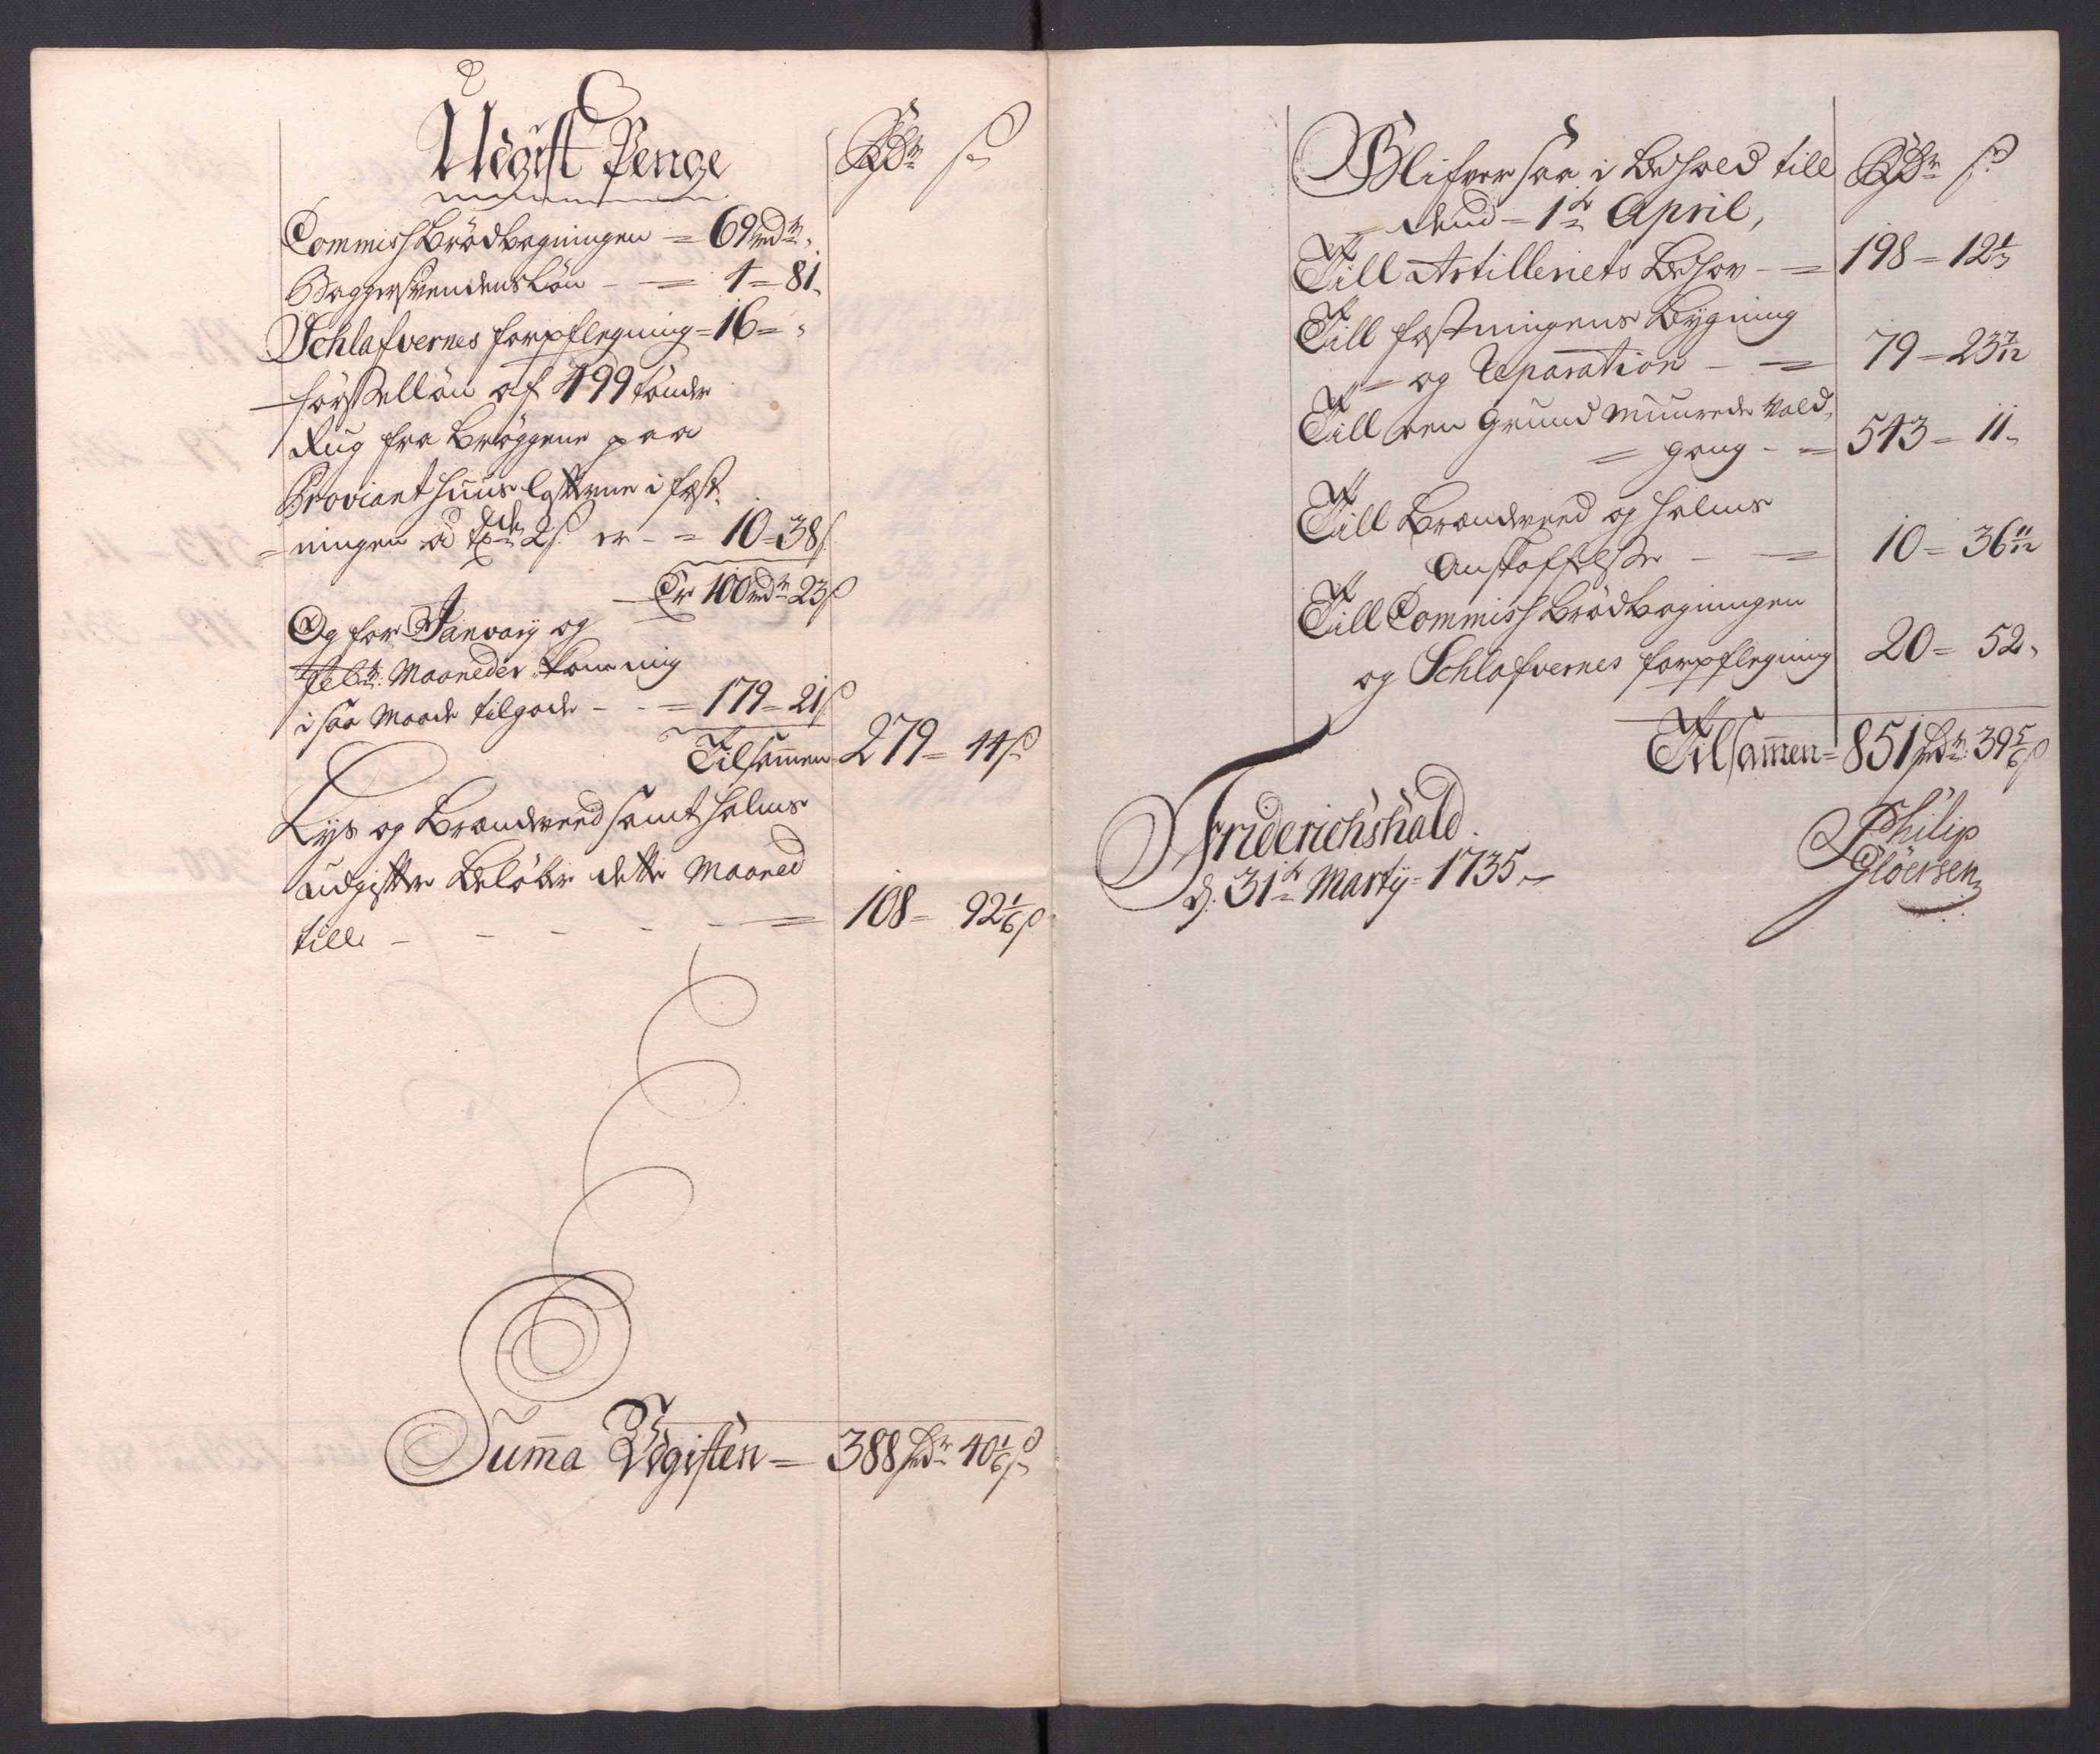 Udgift Penge
Rdr ß
Commisz Brödbagningen = 69 rdr
Baggersvendens Lön - = 4 = 81
Schlafvernes forpflegning = 16 =
förselløn af 499 tønder
Rug fra Bryggene paa
Proviant Huus lofterne i fæst-
ningen à tde 2 ß er - = 10 = 38 ß
Er 100 rdr 23 ß
Og for Januarij og
Febr: Maaneder kom mig
i saa Maade tilgode - - = 179 = 21 ß
Tilsamen 279 = 44 ß
Lys og Brændeveed samt Halms
udgifter Beløber dette Maaned
till - - - - - = 108 = 92 1/6 ß
Suma Udgiften = 388 Rdr 40 1/6 ß
Blifver saa i Behold till
Rdr ß
dend 1te April,
Till Artilleriets Behov - = 198 = 12 1/3
Till fæstningens Bygning
og Reparation - = 79 = 23 7/12
Till den Grund Muurede Vold-
gang - = 543 = 11
Till Brændeveed og Halms
Anskaffelse - = 10 = 36 11/12
Till Commisz Brödbagningen
og Schlafvernes forpflegning 20 = 52
Tilsamen = 851 Rdr 39 5/6 ß
Friderichshald
d. 31te Martij 1735
Philip
Gløersen